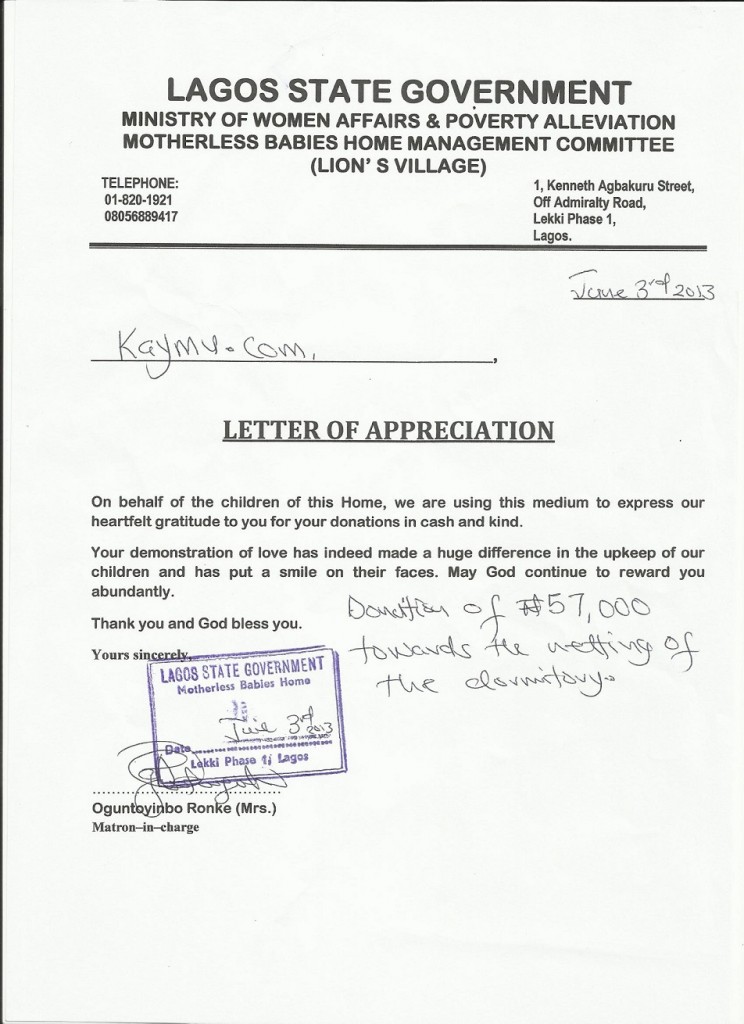 LAGOS STATE GOVERNMENT
MINISTRY OF WOMEN AFFAIRS & POVERTY ALLEVIATION
MOTHERLESS BABIES HOME MANAGEMENT COMMITTEE
(LION' S VILLAGE)
TELEPHONE:
01-820-1921
08056889417
1, Kenneth Agbakuru Street,
Off Admiralty Road,
Lekki Phase 1,
Lagos.
June 3rd 2013
Kaymu.com,
,
LETTER OF APPRECIATION
On behalf of the children of this Home, we are using this medium to express our
heartfelt gratitude to you for your donations in cash and kind.
Your demonstration of love has indeed made a huge difference in the upkeep of our
children and has put a smile on their faces. May God continue to reward you
abundantly.
Donation of ₦57,000
towards the netting of
the dormitory.
Thank you and God bless you.
Yours sincerely,
LAGOS STATE GOVERNMENT
Motherless Babies Home
June 3rd 2013
Date
Lekki Phase 1, Lagos
Oguntoyinbo Ronke (Mrs.)
Matron–in–charge